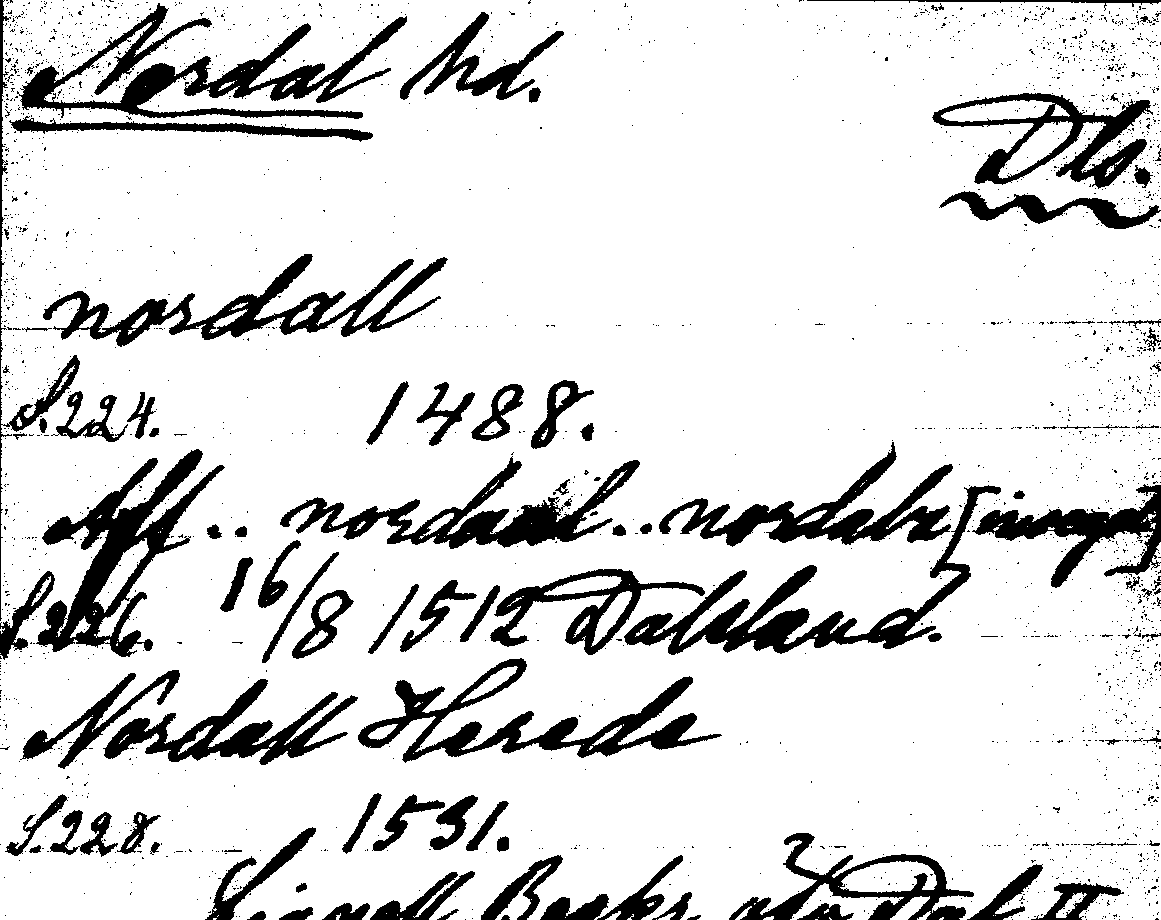 Nordal hd.
Dls.
nordall
S.224. 1488.
Aff .. nordaal .. nordalz
S.226. 16/8 1512 Dalsland.
Nordall Herade
S.228. 1531.
Lignell Beskr. öfv Dal II